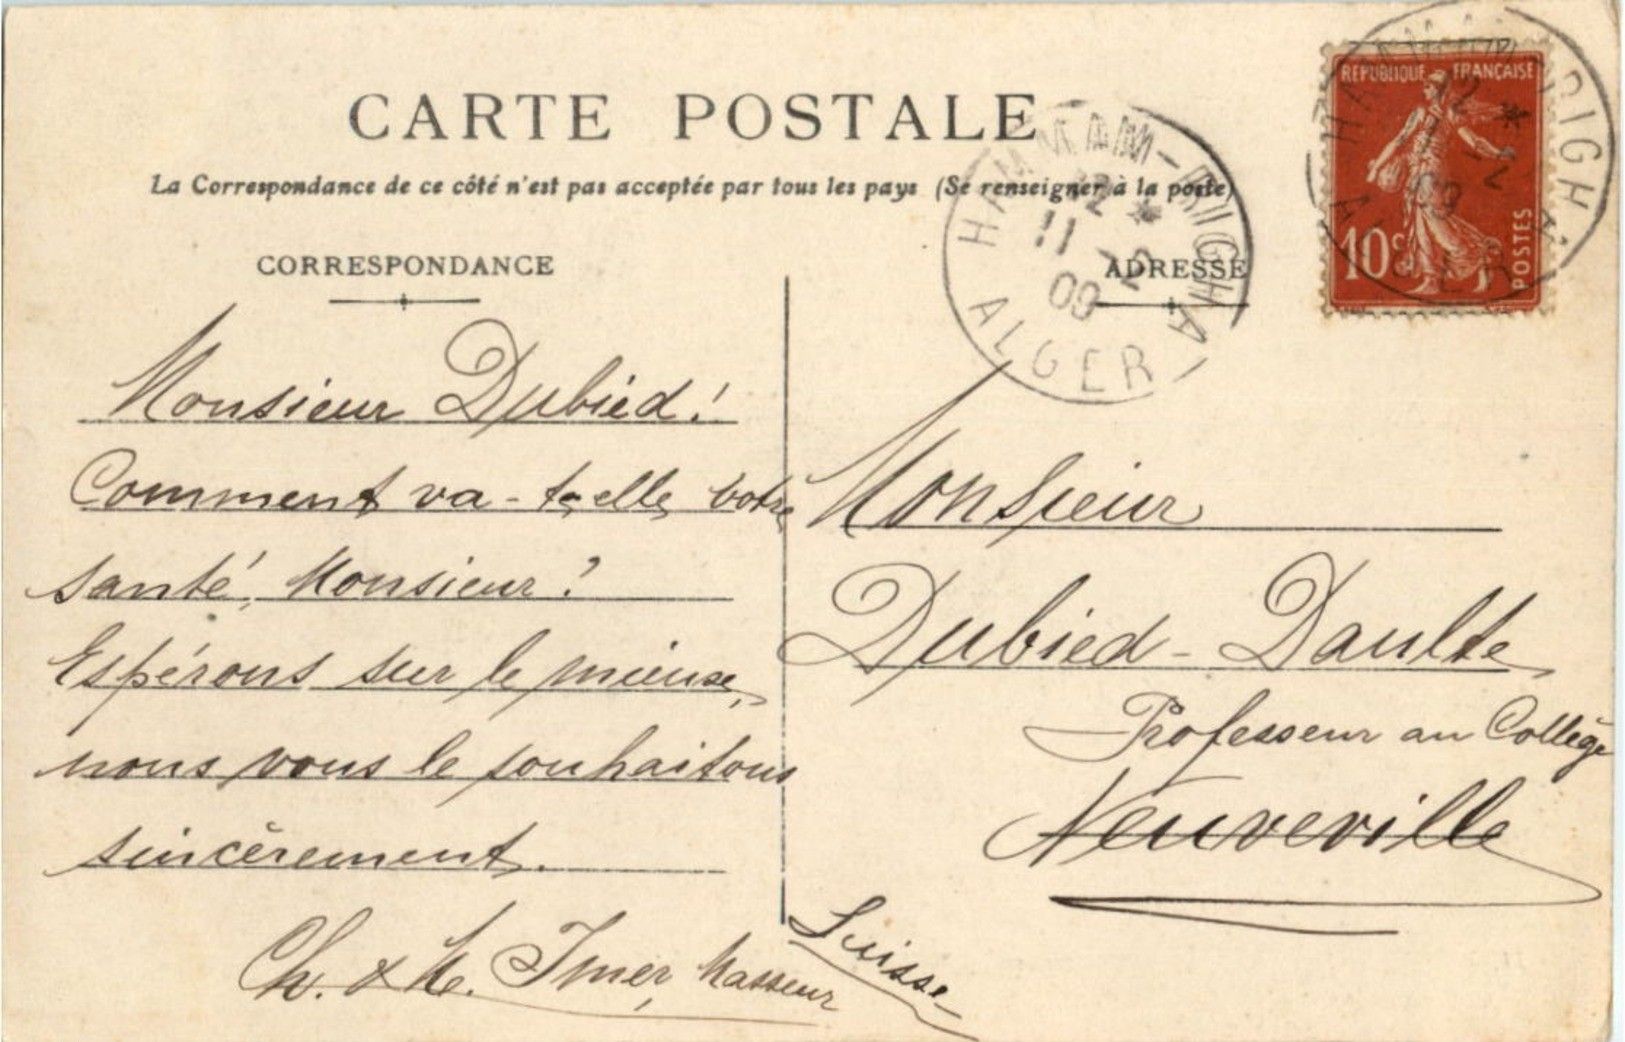 CARTE POSTALE
La Correspondance de ce côté n'est pas acceptée par tous les pays (Se renseigner à la poste)
CORRESPONDANCE
Monsieur Dubied!
Comment va-t-elle votre
santé, Monsieur?
Espérons sur le mieuse,
nous vous le souhaitons
sincèrement.
Ch. & M. Imer, Masseur
ADRESSE
Monsieur
Dubied-Daulte
Professeur au Collège
Neuveville
Suisse
HAMMAM-RIGHA
12 *
11 -2
09
ALGER
REPUBLIQUE FRANÇAISE
10c
POSTES
HAMMAM-RIGHA
12 *
11 -2
09
ALGER